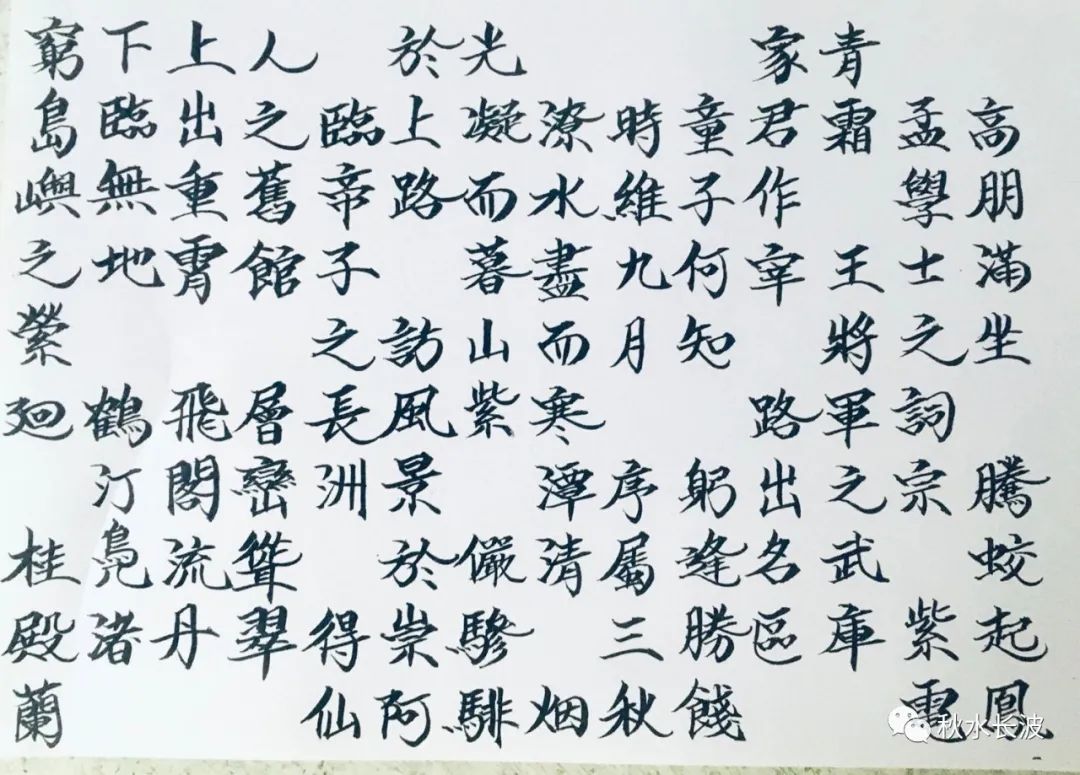 高朋滿坐 騰蛟起鳳
孟學士之詞宗 紫電
青霜 王將軍之武庫
家君作宰 路出名區
童子何知 躬逢勝餞
時維九月 序屬三秋
潦水盡而寒潭清 烟
光凝而暮山紫 儼驂騑
於上路 訪風景於崇阿
臨帝子之長洲 得仙
人之舊館 層巒聳翠
上出重霄 飛閣流丹
下臨無地 鶴汀鳧渚
窮島嶼之縈廻 桂殿蘭
秋水长波